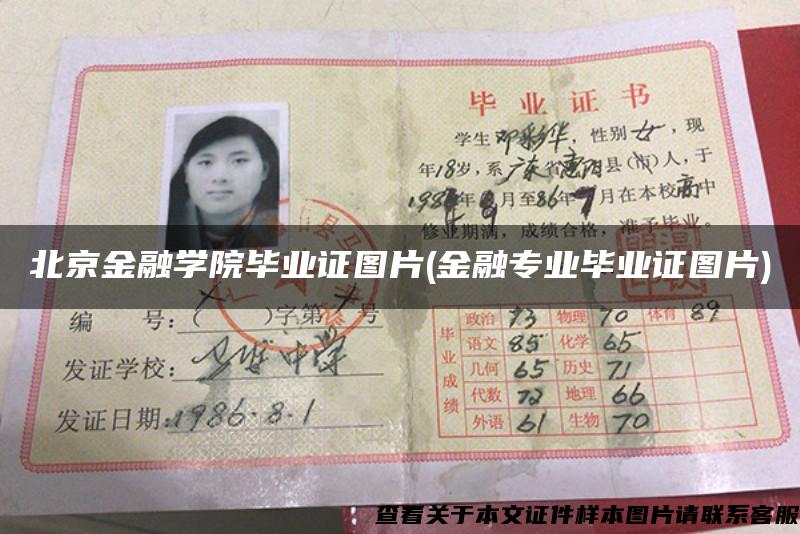 毕业证书
学生邓彩华，性别女，现
年18岁，系广东省惠阳县（市）人，于
月至86年7月在本校高中
修业期满，成绩合格，准予毕业。
北京金融学院毕业证图片(金融专业毕业证图片)
编 号：（ ）字第 号
发证学校：
中学
发证日期：1986.8.1
毕业成绩
政治 73 物理 70 体育 89
语文 85 化学 65
几何 65 历史 71
代数 72 地理 66
外语 61 生物 70
查看关于本文证件样本图片请联系客服